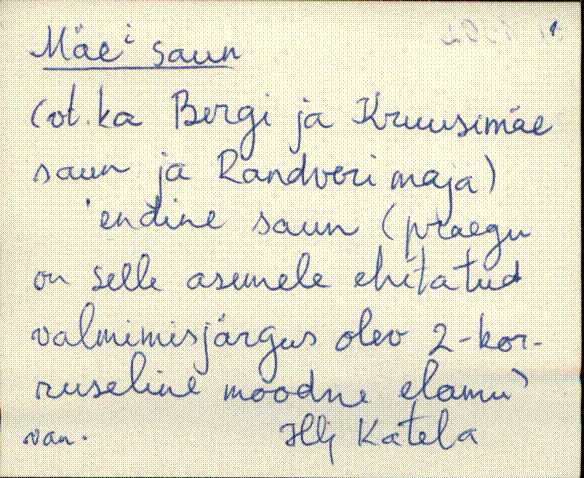 Mäeⁱ saun
(vt. ka Bergi ja Kruusimäe
saun ja Randveri maja)
'endine saun (praegu
on selle asemele ehitatud
valmimisjärgus olev 2-kor-
ruseline moodne elamu)
van. Hlj Katela